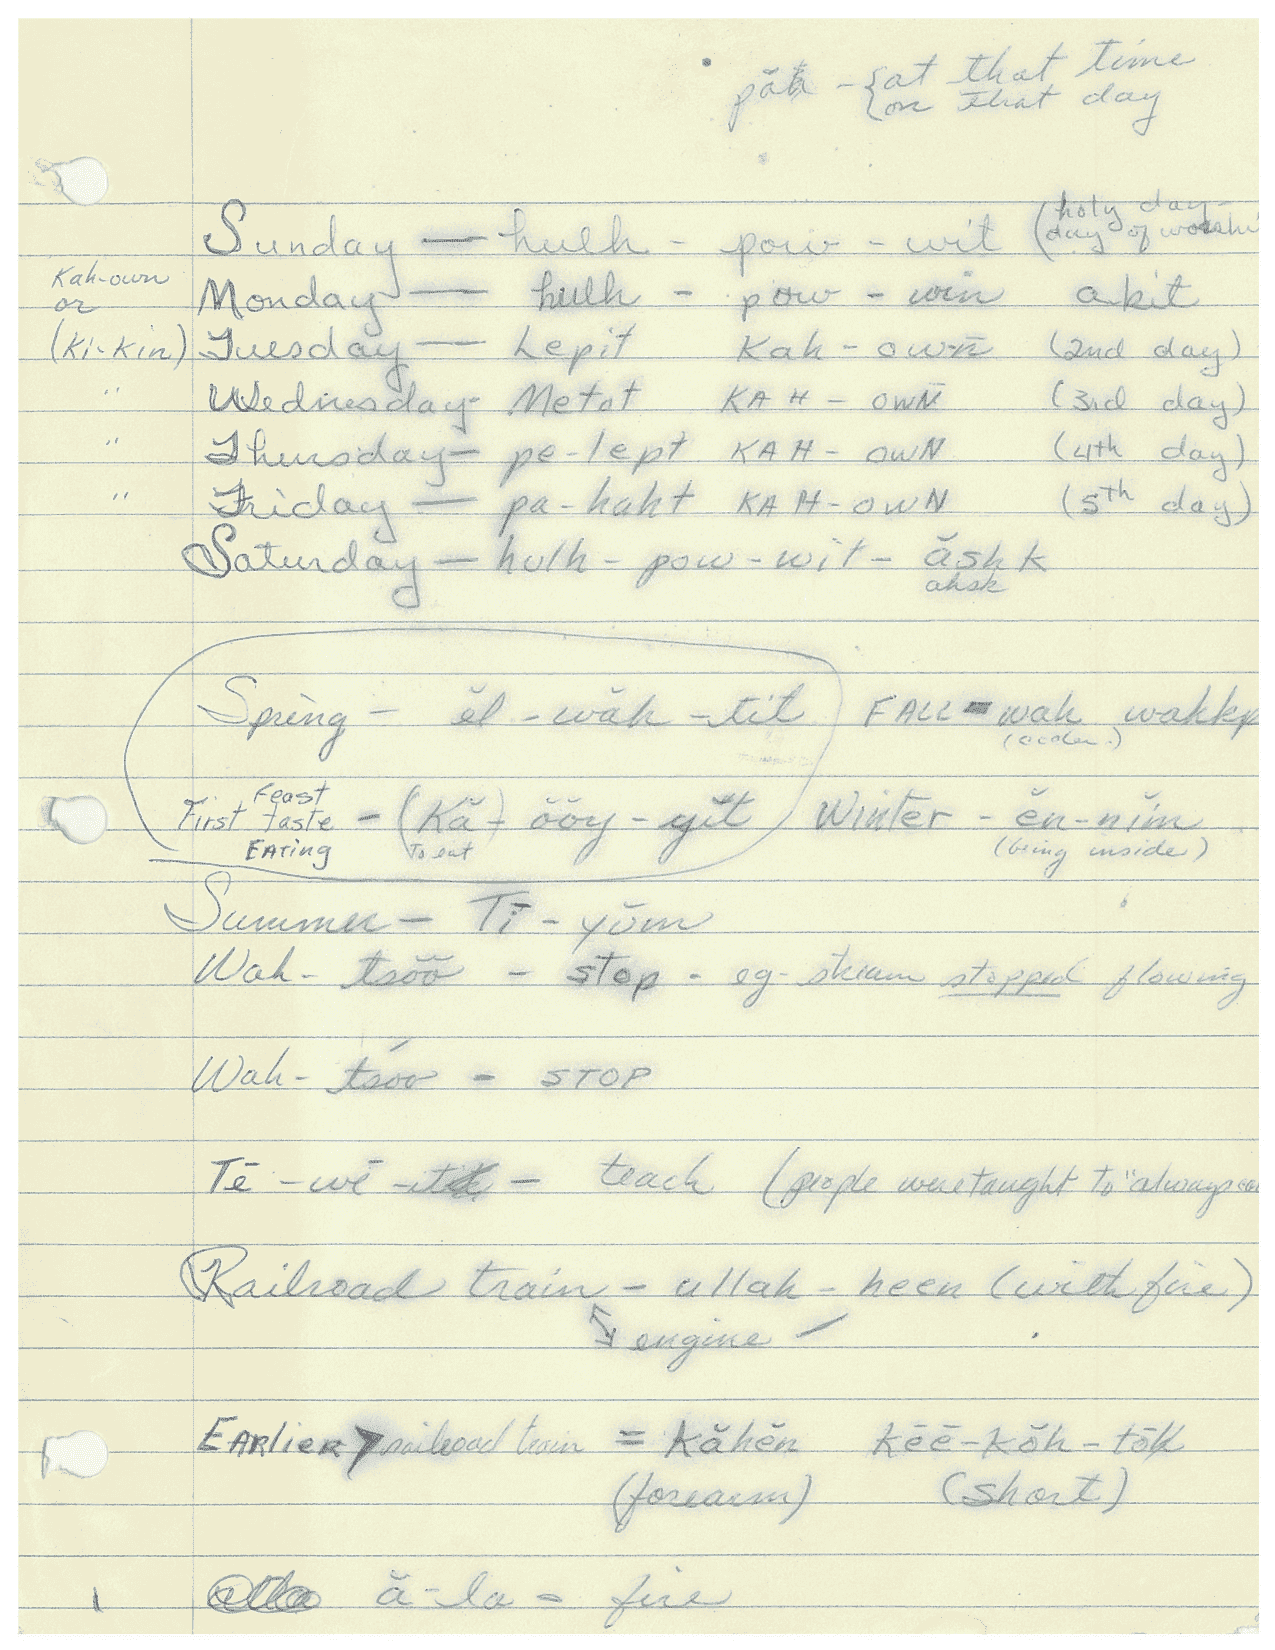 păh - {at that time
on that day
Sunday — hulh - pow - wit (holy day -
day of worshi
Kah-own
or
(Ki-Kin)
Monday — hulh - pow - win akit
Tuesday — Lepit Kah - own (2nd day)
" Wednesday - Metat KAH - OWN (3rd day)
" Thursday — pe-lept KAH - OWN (4th day)
" Friday — pa-haht KAH-OWN (5th day)
Saturday — hulh - pow - wit - ăshk
ahsk
Spring - ĕl - wăh - tit FALL = wah wakkp
Feast
First taste - (Kă) - ŏŏy - yĭt Winter - ĕn-nĭm
EATing (To eat (being inside)
Summer - Tī - yŭm
Wah - tsŏŏ - stop - eg - stream stopped flowing
Wah - tsóo - STOP
Tē - wē - teach (people were taught to "always
Railroad train - ullah - heen (with fire)
engine
EARlieR railroad train = kăhĕn kēē-kŏh-tōk
(forearm) (short)
ă-la = fire